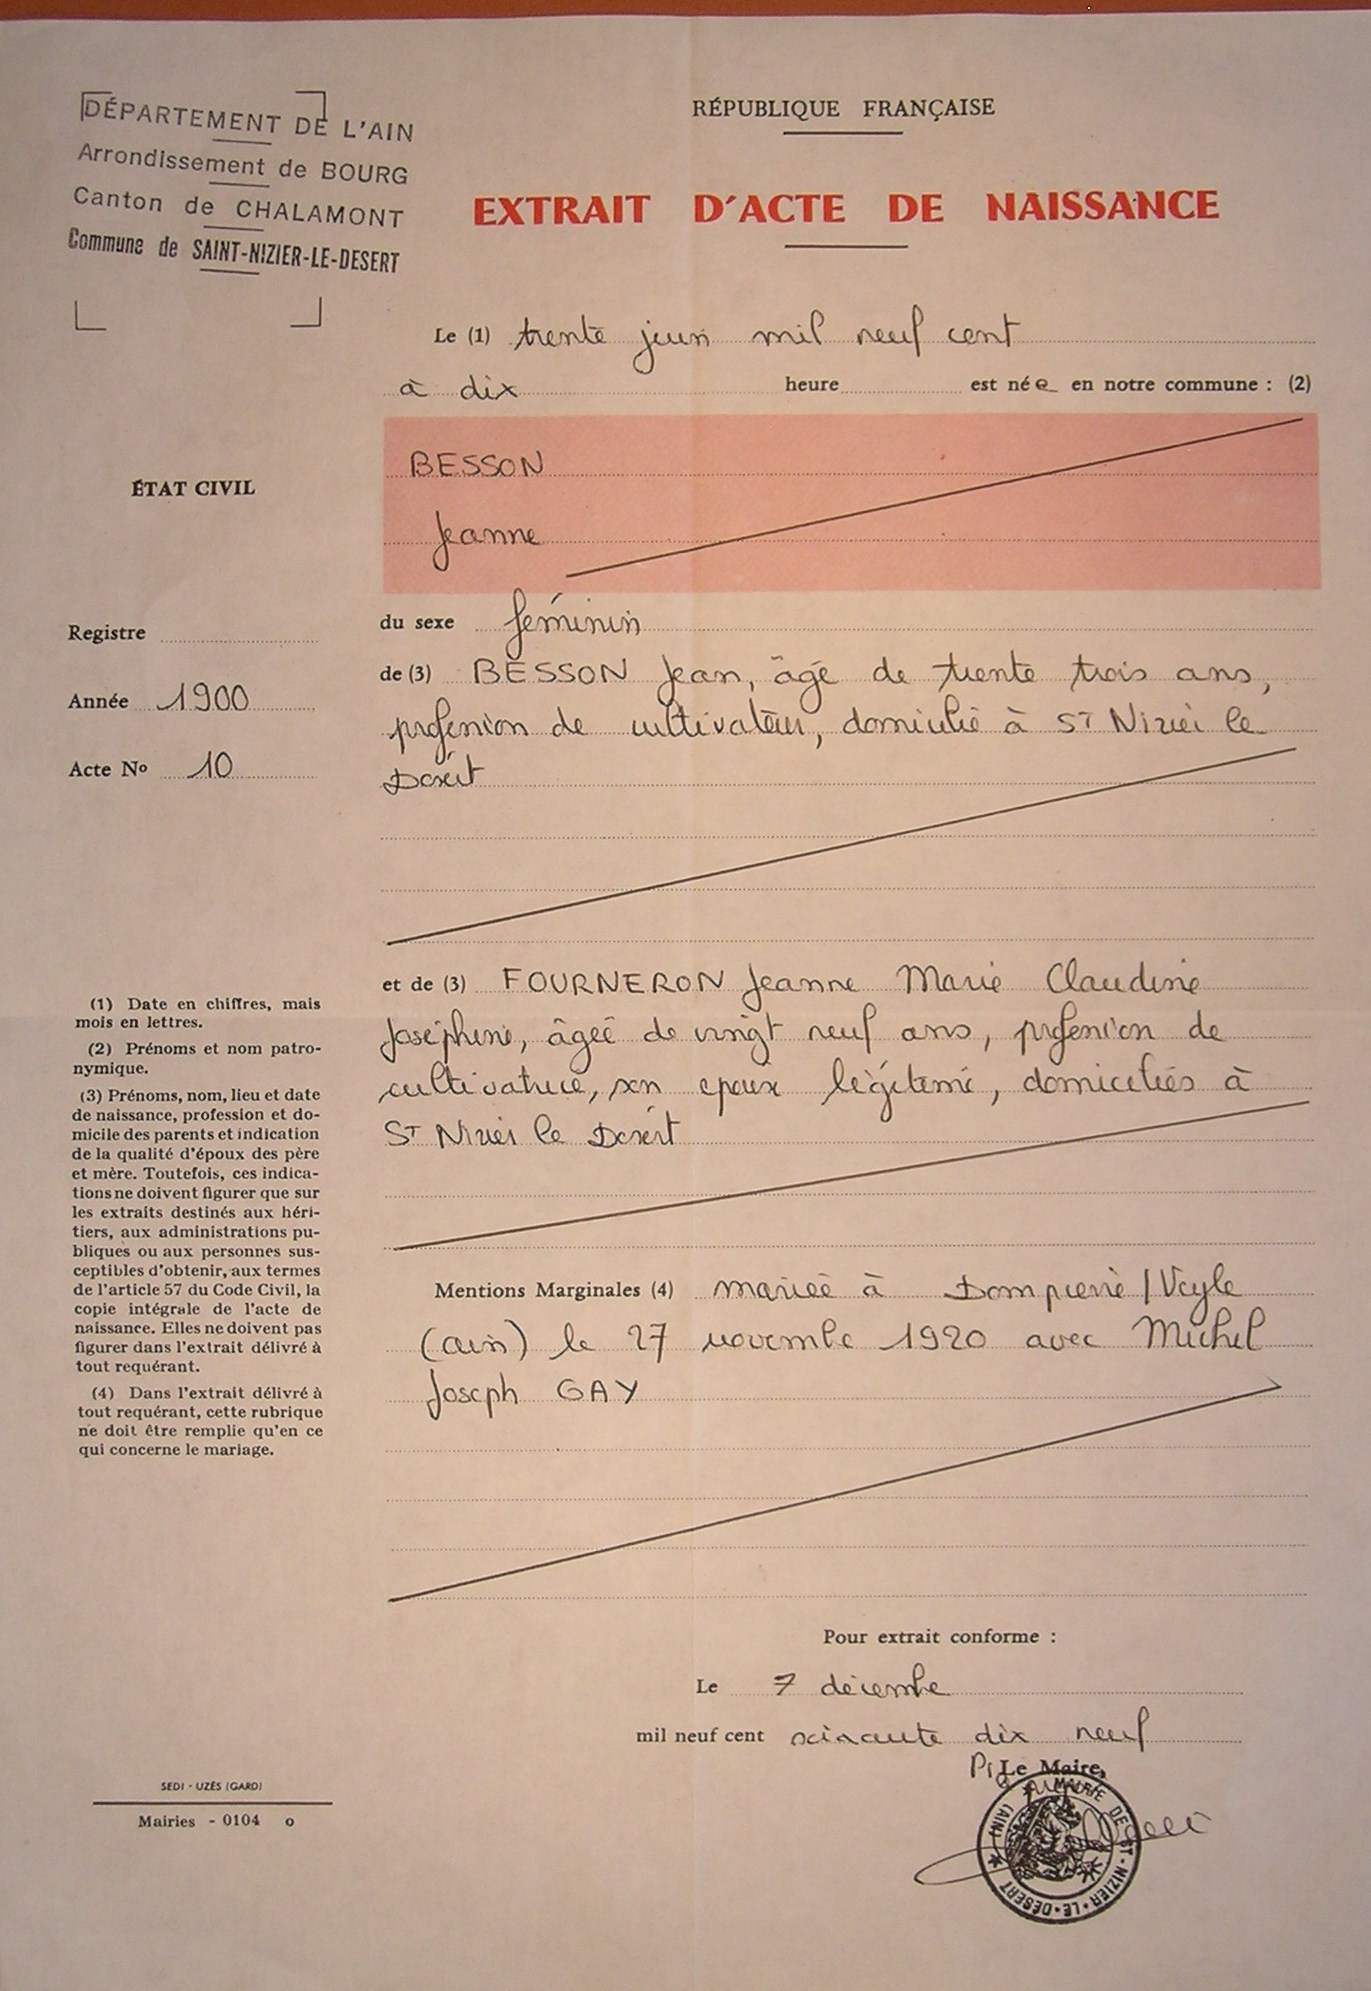 DÉPARTEMENT DE L'AIN
Arrondissement de BOURG
Canton de CHALAMONT
Commune de SAINT-NIZIER-LE-DESERT
RÉPUBLIQUE FRANÇAISE
EXTRAIT D'ACTE DE NAISSANCE
Le (1) trente juin mil neuf cent
à dix heure est née en notre commune : (2)
BESSON
Jeanne
ÉTAT CIVIL
Registre
Année 1900
Acte No 10
du sexe féminin
de (3) BESSON Jean, âgé de trente trois ans,
profession de cultivateur, domicilié à ST Nizier le
Désert
et de (3) FOURNERON Jeanne Marie Claudine
Joséphine, âgée de vingt neuf ans, profession de
cultivatrice, son epoux légitime, domiciliés à
ST Nizier le Désert
Mentions Marginales (4) mariée à Dompierre/Veyle
(ain) le 27 novembre 1920 avec Michel
Joseph GAY
(1) Date en chiffres, mais
mois en lettres.
(2) Prénoms et nom patro-
nymique.
(3) Prénoms, nom, lieu et date
de naissance, profession et do-
micile des parents et indication
de la qualité d'époux des père
et mère. Toutefois, ces indica-
tions ne doivent figurer que sur
les extraits destinés aux héri-
tiers, aux administrations pu-
bliques ou aux personnes sus-
ceptibles d'obtenir, aux termes
de l'article 57 du Code Civil, la
copie intégrale de l'acte de
naissance. Elles ne doivent pas
figurer dans l'extrait délivré à
tout requérant.
(4) Dans l'extrait délivré à
tout requérant, cette rubrique
ne doit être remplie qu'en ce
qui concerne le mariage.
Pour extrait conforme :
Le 7 décembre
mil neuf cent soixante dix neuf
Le Maire,
MAIRIE DE ST-NIZIER-LE-DÉSERT (AIN)
SEDI - UZÈS (GARD)
Mairies - 0104 o